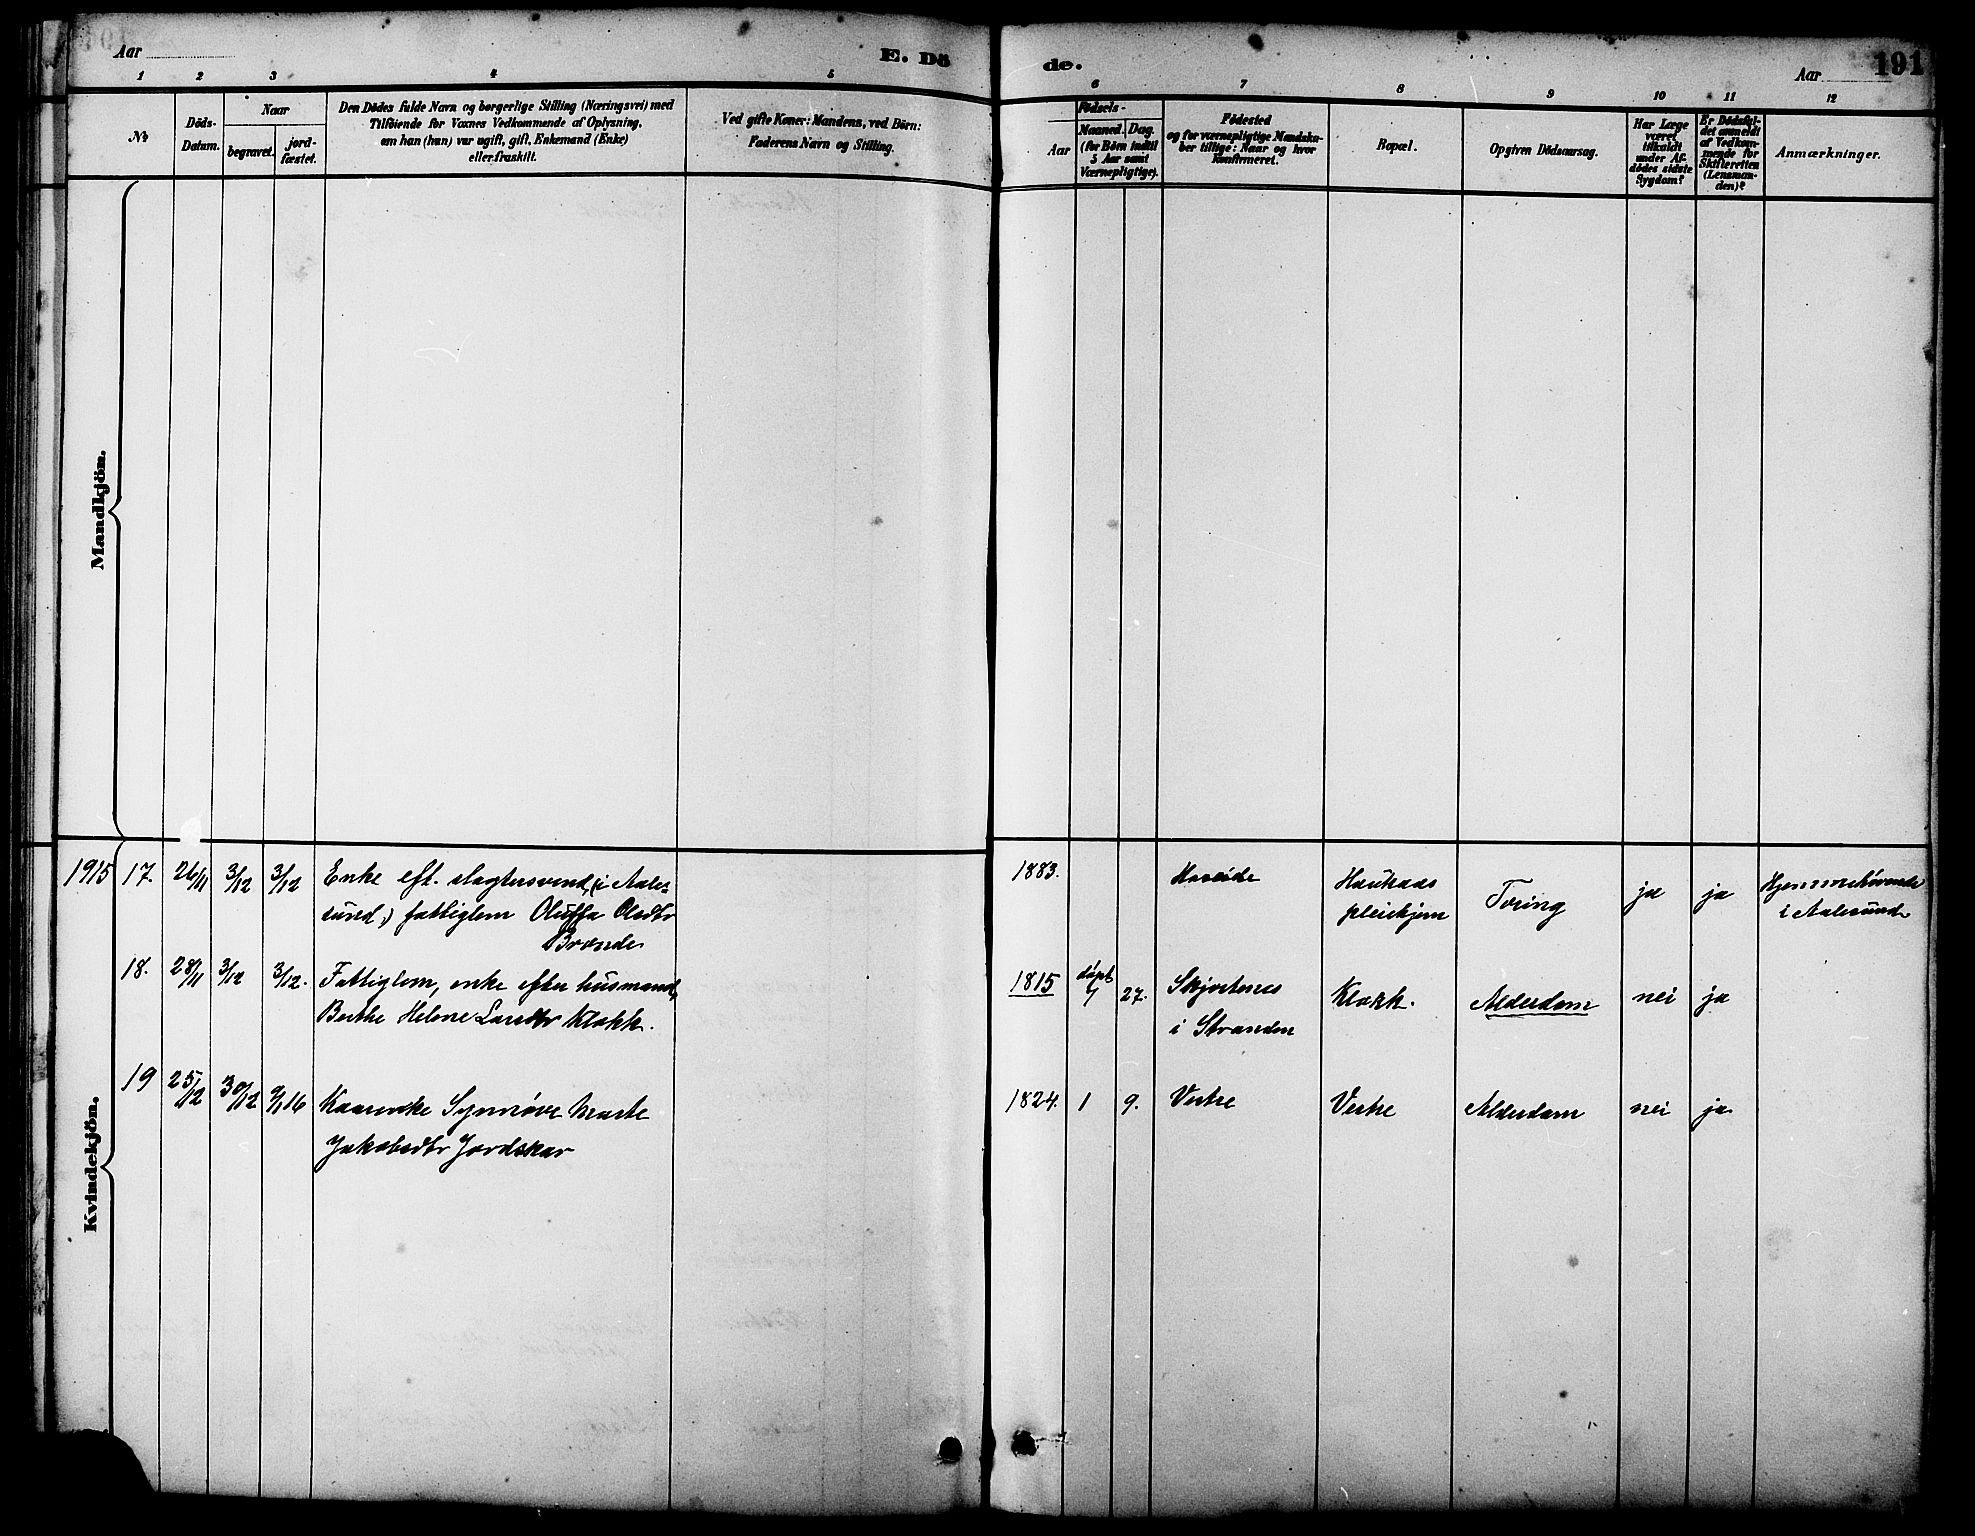 Aar
E. Dö
de.
Aar
191
1 2 3 4 5 6 7 8 9 10 11 12
No
Döds-
Datum.
Naar
begravet.
jord-
fæstet.
Den Dödes fulde Navn og borgerlige Stilling (Næringsvei) med
Tilföiende for Voxnes Vedkommende af Oplysning,
om han (hun) var ugift, gift, Enkemand (Enke)
eller fraskilt.
Ved gifte Koner: Mandens, ved Börn:
Faderens Navn og Stilling.
Födsels-
Aar
Maaned.
Dag.
(for Börn indtil
5 Aar samt
Værnepligtige).
Födested
og for værnepligtige Mandska-
ber tillige: Naar og hvor
konfirmeret.
Bopæl.
Opgiven Dödsaarsag.
Har Læge
været
tilkaldt
under Af-
dödes sidste
Sygdom?
Er Dödsfal-
det anmeldt
af Vedkom-
mende for
Skifteretten
(Lensman-
den)?
Anmærkninger.
Mandkjön.
Kvindekjön.
1915 17. 26/11 3/12 3/12 Enke eft. slagtersvend, (i Aale-
sund,) fattiglem Oluffa Olsdtr
Brænde
1883. Hareide
pleiehjem
Tæring
ja ja Hjemmehørende
i Aalesund
18. 28/11 3/12 3/12. Fattiglem, enke efter husmand,
Berthe Helene Larsdtr Klokk.
1815 døpt
7 27. i Stranden
Klokk. Alderdom nei ja
19 25/12 30/12 9/1 16 Kaarenke Synnøve Marte
Jakobsdtr Jordskar
1824. 1 9. Vestre Vestre Alderdom nei ja